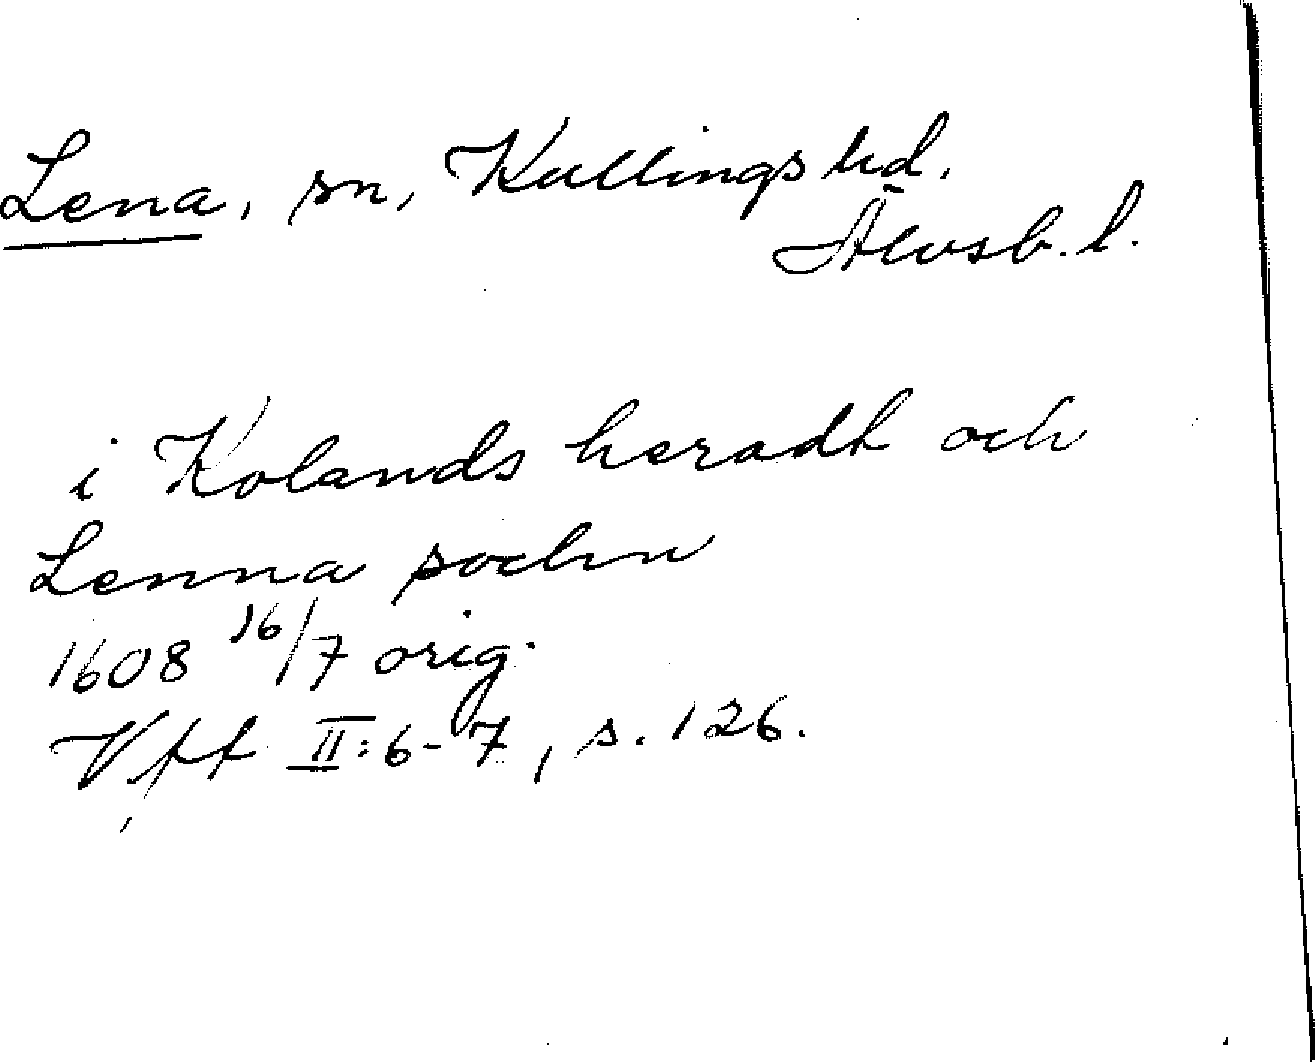 Lena, sn, Kullings hd.
Älvsb. l.
i Kolands heradh och
Lenna sochn
1608 16/7 orig.
Vff II:6-7, s. 126.